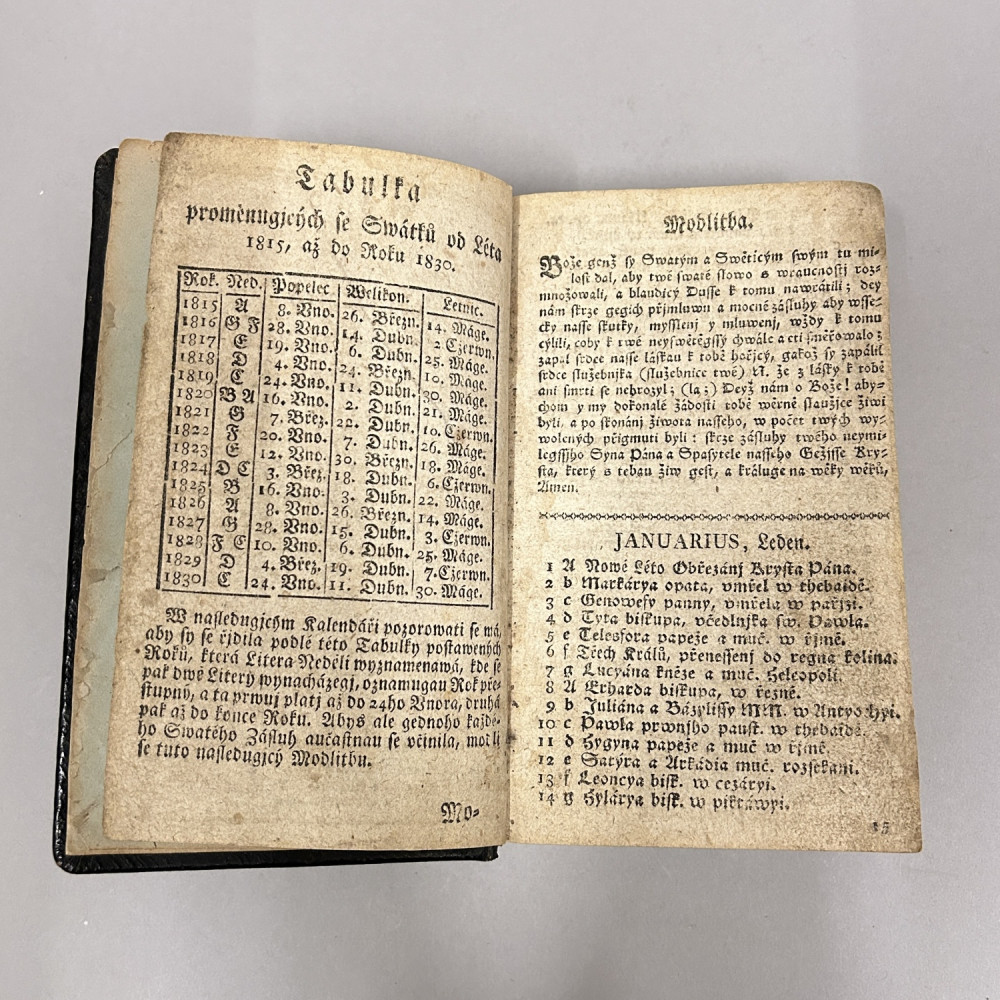 Tabulka
proměnugjcých se Swátků od Léta
1815, až do Roku 1830.
Rok. Ned. Popelec Welikon. Letnic.
1815 A 8. Vno. 26. Březn. 14. Máge.
1816 G F 28. Vno. 14. Dubn. 2 Czerwn.
1817 E 19. Vno. 6. Dubn. 25. Máge.
1818 D 4. Vno. 24. Březn. 10. Máge.
1819 C 24. Vno. 11. Dubn. 30. Máge.
1820 B A 16. Vno. 2. Dubn. 21. Máge.
1821 G 7. Břez. 22. Dubn. 10. Czerwn.
1822 F 20. Vno. 7. Dubn. 26. Máge.
1823 E 12. Vno. 30. Březn. 18. Máge.
1824 D C 3. Břez. 18. Dubn. 6. Czerwn.
1825 B 16. Vno. 3. Dubn. 22. Máge.
1826 A 8. Vno. 26. Březn. 14. Máge.
1827 G 28. Vno. 15. Dubn. 3. Czerwn.
1828 F E 10. Vno. 6. Dubn. 25. Máge.
1829 D 4. Břez. 19. Dubn. 7. Czerwn.
1830 C 24. Vno. 11. Dubn. 30. Máge.
W následugjcým Kalendáři pozorowati se má,
aby sy se řjdila podlé této Tabulky postawených
Roků, která Litera Neděli wyznamenawá, kde se
pak dwě Litery wynacházegj, oznamugau Rok pře-
stupný, a ta prwuj platj až do 24ho Vnora, druhá
pak až do konce Roku. Abys ale gednoho každé-
ho Swatého Zásluh aučastnau se včinila, modli
se tuto následugjcý Modlitbu.
Mo-
Modlitba.
Bože genž sy Swatým a Swěticým swým tu mi-
lost dal, aby twé swaté slowo s wraucnostj roz-
množowali, a blaudicý Dusse k tomu nawrátili; dey
nám skrze gegich přjmluwu a mocné zásluhy aby wsse-
cky nasse skutky, myslenj y mluwenj, wždy k tomu
cýlili, coby k twé neyswětěgssý chwále a cti směřowalo;
zapal srdce nasse láskau k tobě hořjcý, gakož sy zapálil
srdce služebnjka (služebnice twé) N. že z lásky k tobě
ani smrti se nehrozyl; (la;) Deyž nám o Bože! aby-
chom y my dokonalé žádosti tobě wěrně slaužjce žiwi
byli, a po skonánj žiwota nasseho, w počet twých wy-
wolených přigmuti byli: skrze zásluhy twého neymi-
legssjho Syna Pána a Spasytele nasseho Gežjsse Kry-
sta, který s tebau žiw gest, a kraluge na wěky wěků,
Amen.
JANUARIUS, Leden.
1 A Nowé Léto Obřezánj Krysta Pána.
2 b Markárya opata, vmřel w thebaidě.
3 c Genowefy panny, vmřela w pařjži.
4 d Tyta biskupa, včedlnjka sw. Pawla.
5 e Telesfora papeže a muč. w řjmě.
6 f Třech Králů, přenessenj do regna kolina.
7 g Lucyána kněze a muč. Heleopoli.
8 A Erharda biskupa, w řezně.
9 b Juliána a Bázylissy MM. w Antyochyi.
10 c Pawla prwnjho paust. w thebaidě.
11 d Hygyna papeže a muč w řjmě.
12 e Satýra a Arkádia muč. rozsekani.
13 f Leoncya bisk. w cezáryi.
14 g Hylárya bisk. w piktáwyi.
15